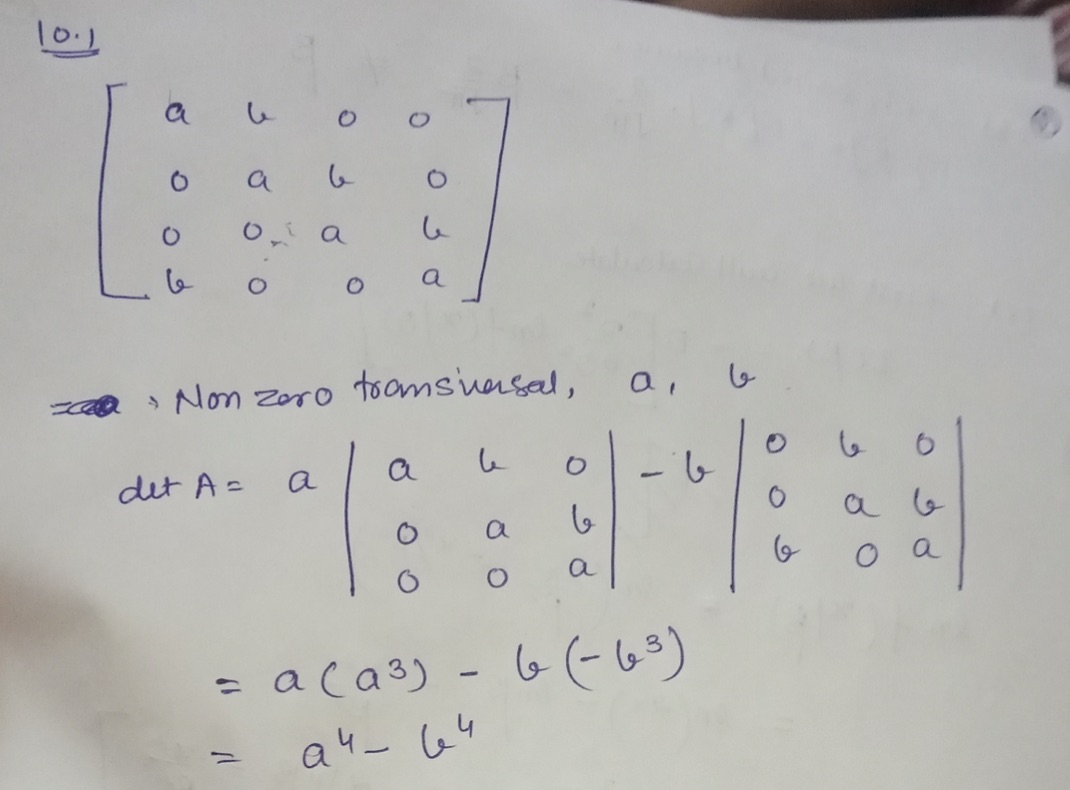 10.1
a b 0 0
0 a b 0
0 0 a b
b 0 0 a
Non zero transversal, a, b
det A = a | a b 0 | - b | 0 b 0 |
| 0 a b | | 0 a b |
| 0 0 a | | b 0 a |
= a(a³) - b(-b³)
= a⁴ - b⁴